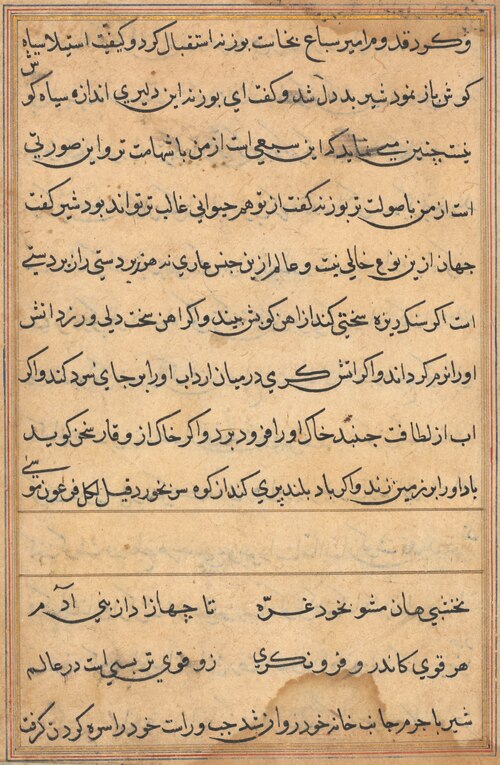 وکرد قدوم امیر سباع بخاست بوزنه استقبال کرد و کیفیت استیلا سیاه
کوش باز نمود شیر بددل شد و کفت ای بوزنه این دلیری اندازه سیاه کوش
نیست چنین می‌نماید که این سبعی است از من باشهامت تر و این صورتی
است از من باصولت تر بوزنه کفت از تو هر حیوانی غالب تر تواند بود شیر کفت
جهان ازین نوع خالی نیست و عالم ازین جنس عاری نه هر زبردستی را زبردستی
است اکر سنک ریزه سختی کند از اهن کوبش بیند و اکر اهن سخت دلی ورزد اتش
اورا نرم کرداند و اکر اتش کری در میان ارد اب اورا بر جای سرد کند و اکر
اب از لطافت جنبد خاک اورا فرود برد و اکر خاک از وقار سخن کوید
باد اورا بر زمین زند و اکر باد بلند پری کند از کوه سر بخورد قیل لکل فرعون موسی
نخشبی هان مشو بخود غرّه تا چها زاد از بنی آدم
هر قوی کاندرو فرو نکری زو قوی تر بسی است در عالم
شیر باجرم جانب خانه خود روان شد چپ و راست خود را سره کردن کرفت